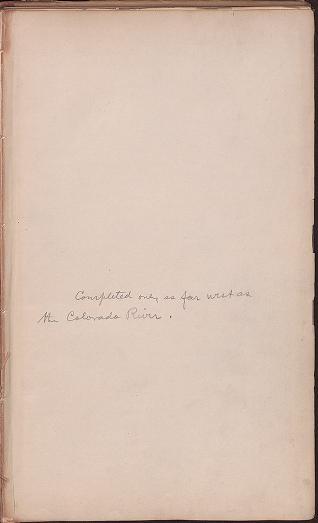 Completed only as far west as
the Colorado River.